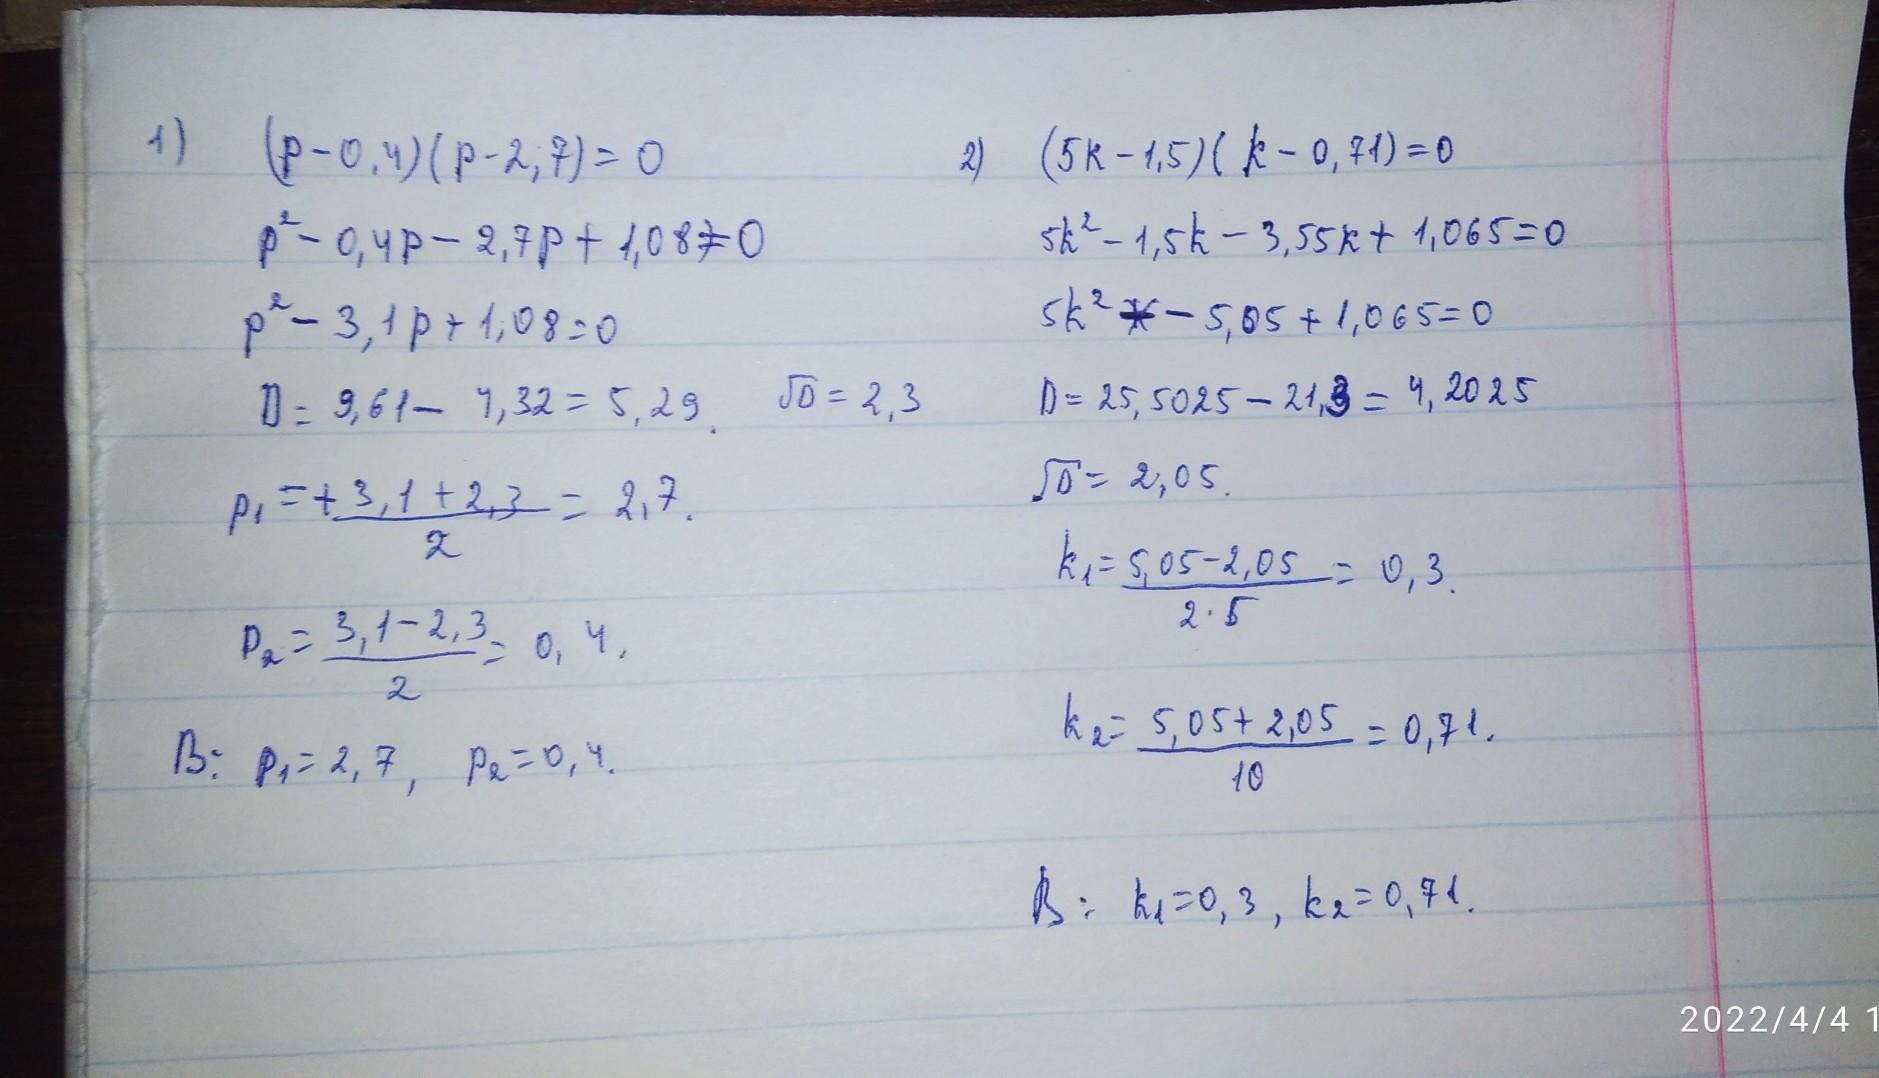 1) (p-0,4)(p-2,7)=0
p²-0,4p-2,7p+1,08=0
p²-3,1p+1,08=0
D=9,61-4,32=5,29. √D=2,3
p₁=+3,1+2,3/2=2,7.
p₂=3,1-2,3/2=0,4.
В: p₁=2,7, p₂=0,4.
2) (5k-1,5)(k-0,71)=0
5k²-1,5k-3,55k+1,065=0
5k²-5,05+1,065=0
D=25,5025-21,3=4,2025
√D=2,05.
k₁=5,05-2,05/2·5=0,3.
k₂=5,05+2,05/10=0,71.
В: k₁=0,3, k₂=0,71.
2022/4/4 1